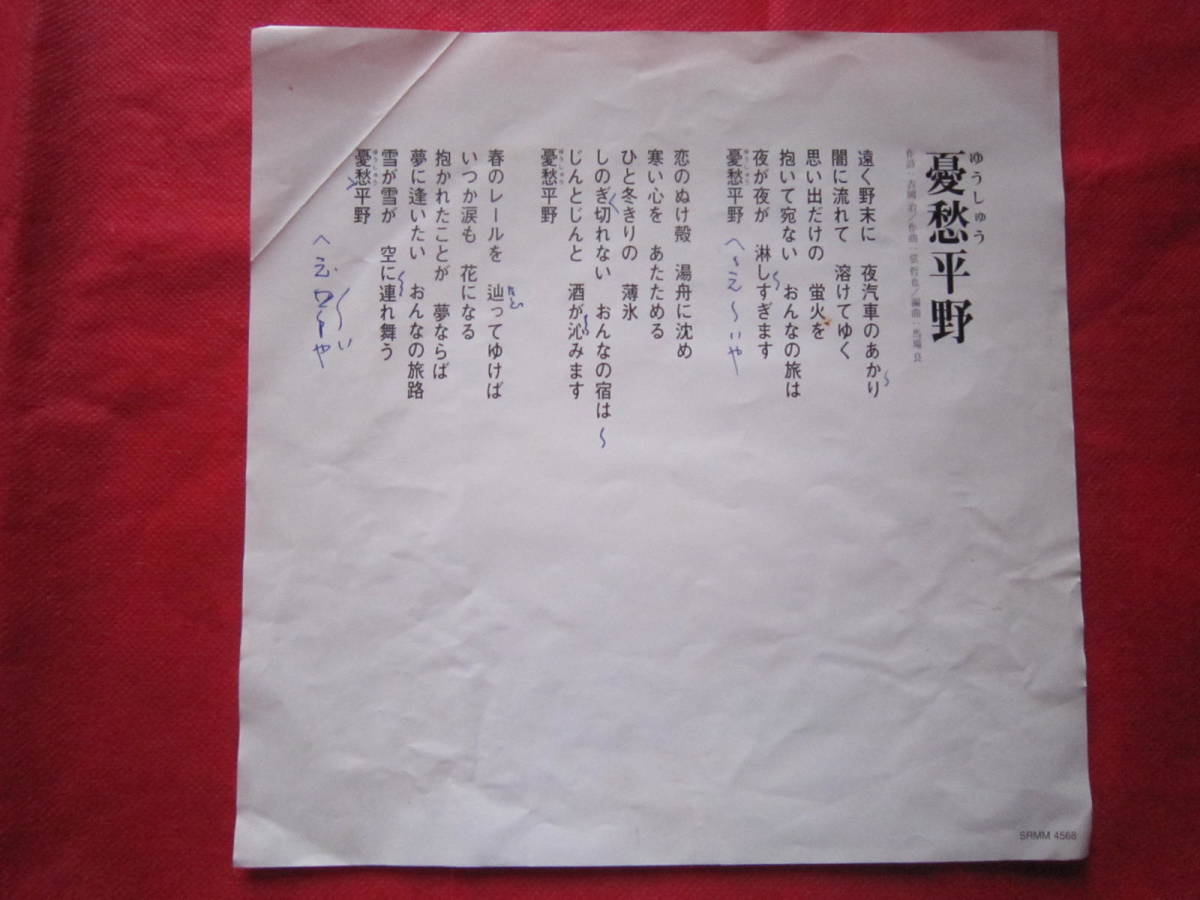 憂愁平野
ゆうしゅう
作詩・吉岡 治/作曲・弦 哲也/編曲・馬場 良
遠く野末に 夜汽車のあかり
闇に流れて 溶けてゆく
思い出だけの 蛍火を
抱いて宛ない おんなの旅は
夜が夜が 淋しすぎます
憂愁平野
ゆうしゅう
へ〜え〜いや
恋のぬけ殻 湯舟に沈め
寒い心を あたためる
ひと冬きりの 薄氷
しのぎ切れない おんなの宿は〜
じんとじんと 酒が沁みます
憂愁平野
ゆうしゅう
春のレールを 辿ってゆけば
たど
いつか涙も 花になる
抱かれたことが 夢ならば
夢に逢いたい おんなの旅路
雪が雪が 空に連れ舞う
憂愁平野
ゆうしゅう
SRMM 4568